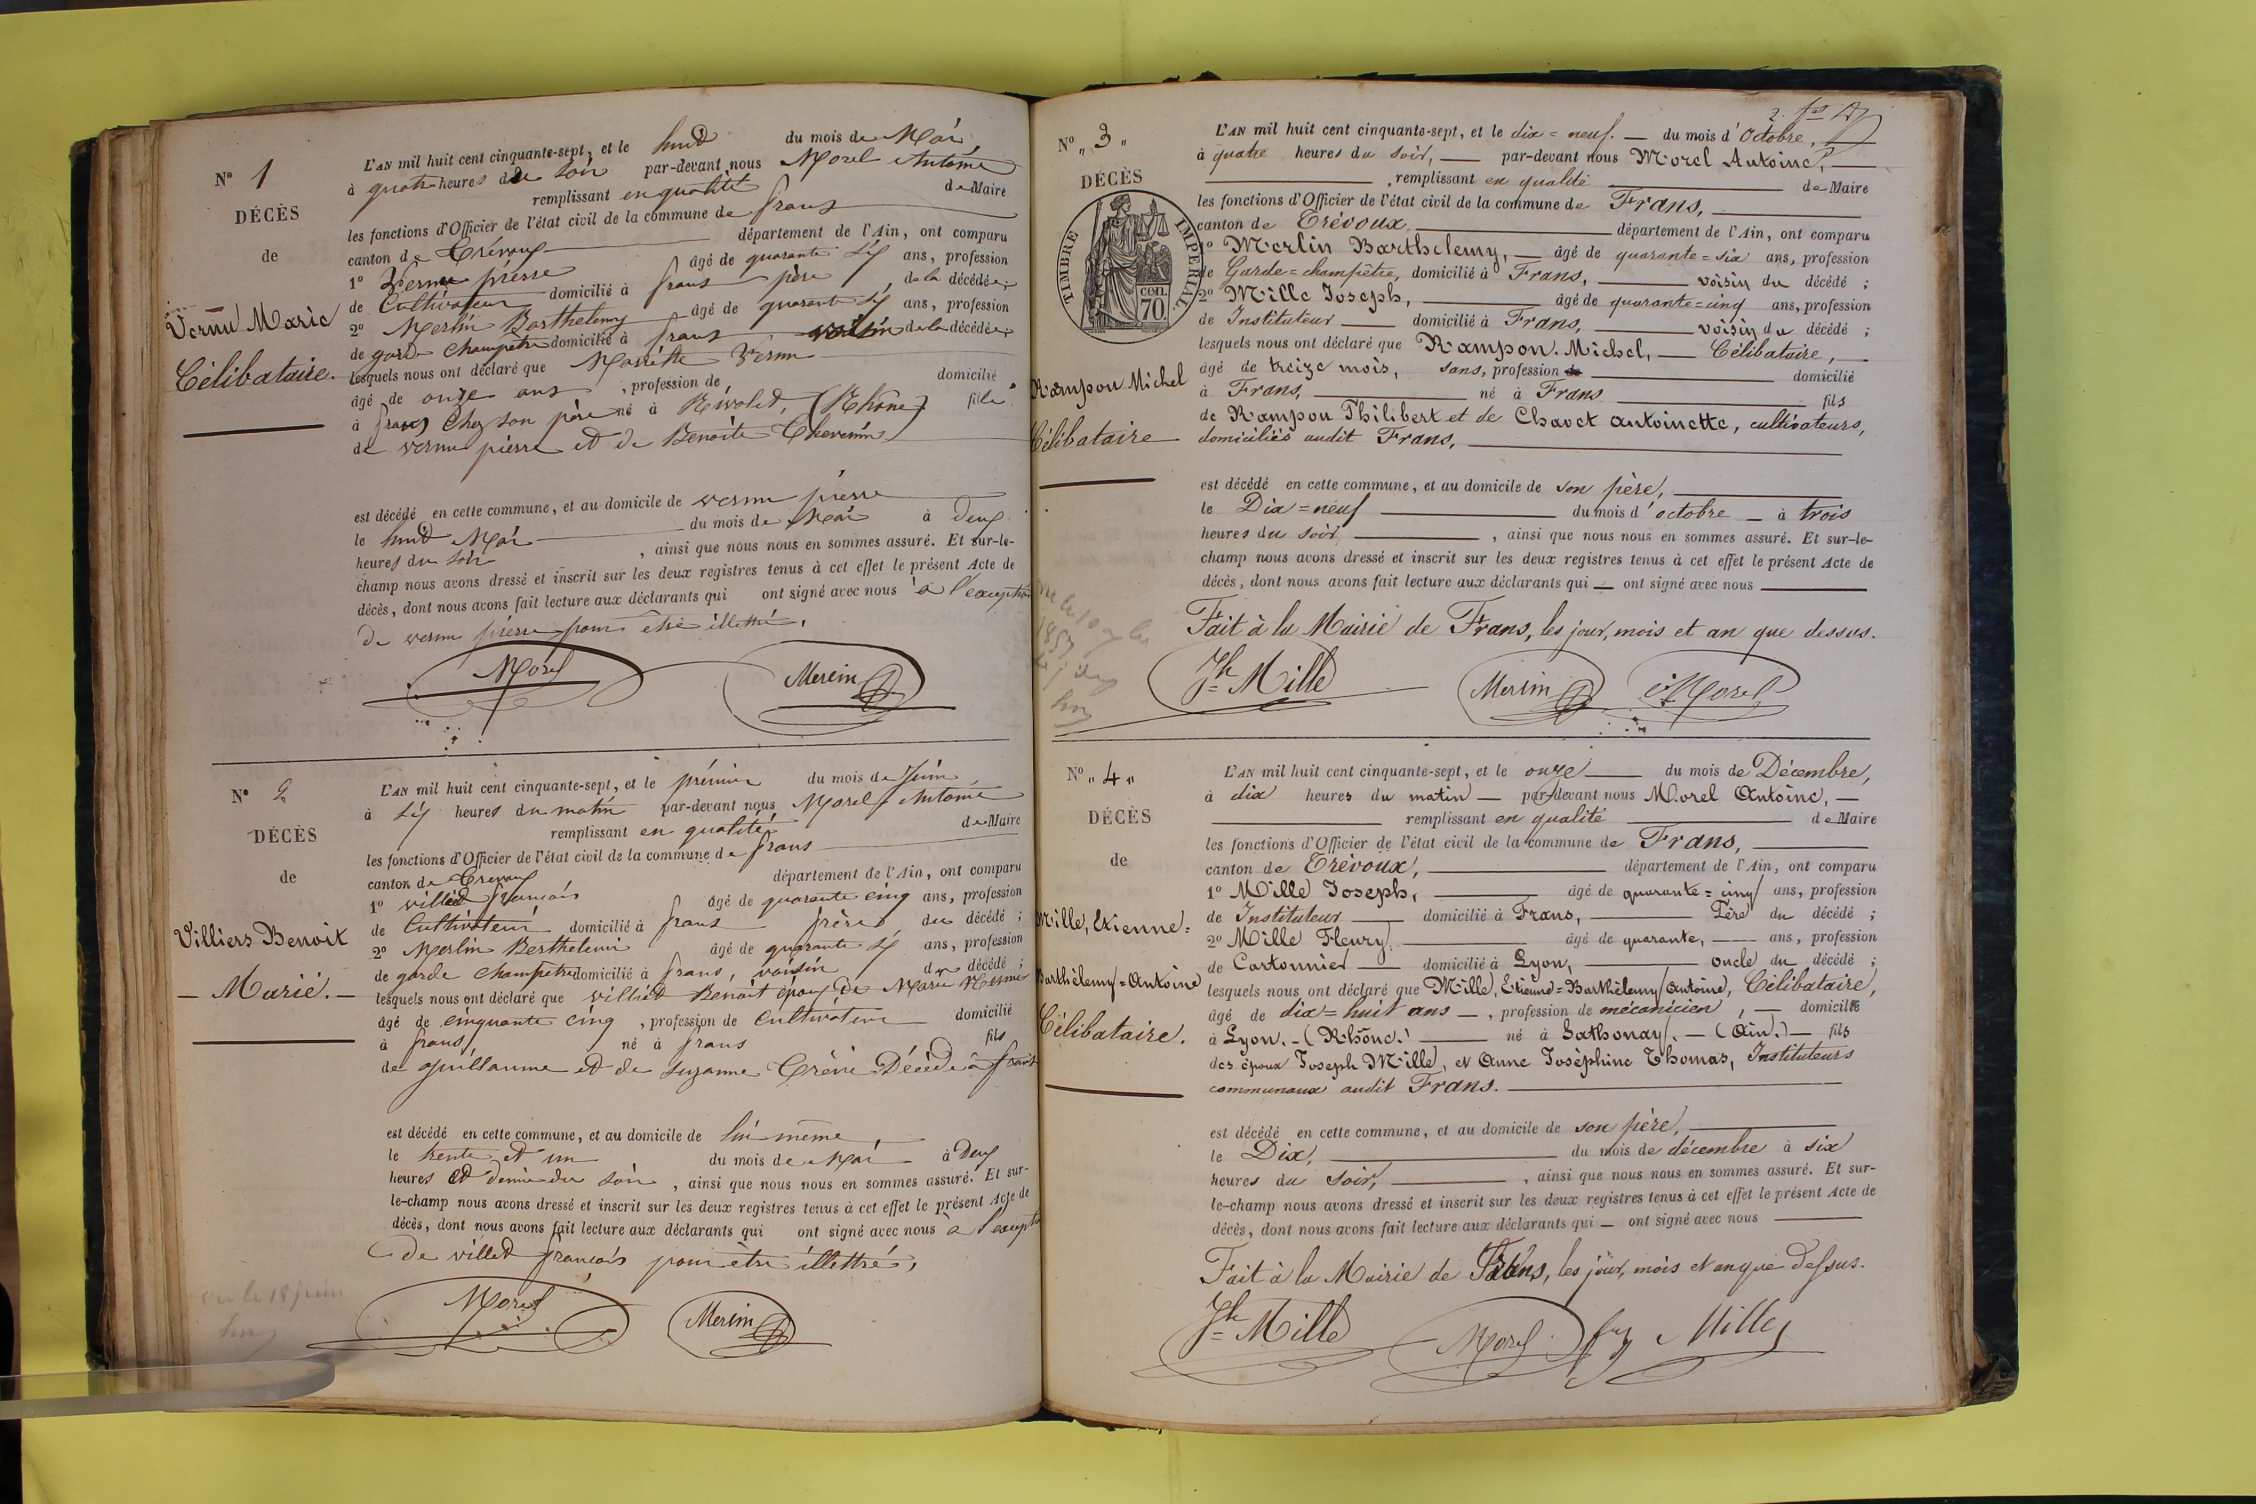 N° 1
DÉCÈS
de
Vernu Marie
Célibataire.
L'AN mil huit cent cinquante-sept, et le huit du mois de Mai
à quatre heures du soir par-devant nous Morel Antoine
remplissant en qualité de Maire
les fonctions d'Officier de l'état civil de la commune de frans
canton de Trévoux département de l'Ain, ont comparu
1° Vernu pierre âgé de quarante six ans, profession
de Cultivateur domicilié à frans père, de la décédée;
2° Merlin Barthelemy âgé de quarante six ans, profession
de garde champêtre domicilié à frans voisin de la décédée;
lesquels nous ont déclaré que Mariette Vernu
âgé de onze ans, profession de domicilié
à frans chez son père né à Rivolet, (Rhône) fille
de vernu pierre et de Benoite Chevenin
est décédé en cette commune, et au domicile de vernu pierre
le huit Mai du mois de Mai à deux
heures du soir, ainsi que nous nous en sommes assuré. Et sur-le-
champ nous avons dressé et inscrit sur les deux registres tenus à cet effet le présent Acte de
décès, dont nous avons fait lecture aux déclarants qui ont signé avec nous à l'exeption
de vernu pierre pour etre illettré.
Morel Merlin
N° 2
DÉCÈS
de
Villiers Benoit
— Marié. —
L'AN mil huit cent cinquante-sept, et le prémier du mois de Juin
à six heures du matin par-devant nous Morel Antoine
remplissant en qualité de Maire
les fonctions d'Officier de l'état civil de la commune de frans
canton de Trevoux département de l'Ain, ont comparu
1° villiet francois âgé de quarante cinq ans, profession
de Cultivateur domicilié à frans frère, du décédé;
2° Merlin Berthelemi âgé de quarante six ans, profession
de garde champêtre domicilié à frans, voisin du décédé;
lesquels nous ont déclaré que villiet Benoit époux de Marie
âgé de cinquante cinq, profession de Cultivateur domicilié
à frans, né à frans fils
de guillaume et de Suzanne Décédé à frans
est décédé en cette commune, et au domicile de lui même,
le trente et un du mois de Mai à deux
heures et demie du soir, ainsi que nous nous en sommes assuré. Et sur-
le-champ nous avons dressé et inscrit sur les deux registres tenus à cet effet le présent Acte de
décès, dont nous avons fait lecture aux déclarants qui ont signé avec nous à l'exeption
de villiet francois pour être illettré.
Morel Merlin
vu le 18 juin
N° „ 3 „
DÉCÈS
TIMBRE IMPERIAL
70 cen.
Rampon Michel
Célibataire
L'AN mil huit cent cinquante-sept, et le dix=neuf. — du mois d'Octobre,
à quatre heures du soir, — par-devant nous Morel Antoine, —
remplissant en qualité de Maire
les fonctions d'Officier de l'état civil de la commune de Frans,
canton de Trévoux département de l'Ain, ont comparu
1° Merlin Barthelemy, — âgé de quarante=six ans, profession
de Garde=champêtre, domicilié à Frans, voisin du décédé;
2° Mille Joseph, âgé de quarante=cinq ans, profession
de Instituteur domicilié à Frans, voisin du décédé;
lesquels nous ont déclaré que Rampon Michel, — Célibataire, —
âgé de treize mois, sans, profession de domicilié
à Frans, né à Frans fils
de Rampon Philibert et de Chavet antoinette, cultivateurs,
domiciliés audit Frans,
est décédé en cette commune, et au domicile de son père,
le Dix=neuf du mois d'octobre — à trois
heures du soir, ainsi que nous nous en sommes assuré. Et sur-le-
champ nous avons dressé et inscrit sur les deux registres tenus à cet effet le présent Acte de
décès, dont nous avons fait lecture aux déclarants qui — ont signé avec nous
Fait à la Mairie de Frans, les jour, mois et an que dessus.
Jh Mille Merlin Morel
N° „ 4 „
DÉCÈS
de
Mille, Etienne=
Barthèlemy=Antoine
Célibataire.
L'AN mil huit cent cinquante-sept, et le onze du mois de Décembre,
à dix heures du matin — par-devant nous Morel Antoine, —
remplissant en qualité de Maire
les fonctions d'Officier de l'état civil de la commune de Frans,
canton de Trévoux, département de l'Ain, ont comparu
1° Mille Joseph, âgé de quarante=cinq ans, profession
de Instituteur domicilié à Frans, Père du décédé;
2° Mille Fleury, âgé de quarante, — ans, profession
de Cartonnier domicilié à Lyon, oncle du décédé;
lesquels nous ont déclaré que Mille, Etienne=Barthèlemy Antoine, Célibataire,
âgé de dix=huit ans —, profession de mécanicien, — domicilié
à Lyon. - (Rhône.) né à Sathonay. — (Ain.) — fils
des époux Joseph Mille, et Anne Josèphine Thomas, Instituteurs
communaux audit Frans.
est décédé en cette commune, et au domicile de son père,
le Dix, du mois de décembre à six
heures du soir, ainsi que nous nous en sommes assuré. Et sur-
le-champ nous avons dressé et inscrit sur les deux registres tenus à cet effet le présent Acte de
décès, dont nous avons fait lecture aux déclarants qui — ont signé avec nous
Fait à la Mairie de Frans, les jour, mois et an que dessus.
Jh Mille Morel Mille